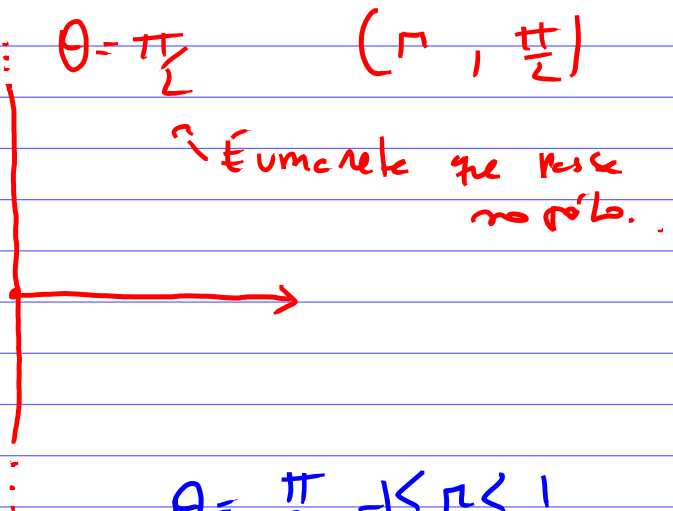 θ = π/2 (r, π/2)
É uma reta que passa
no pólo.
θ = π -1 < r < 1